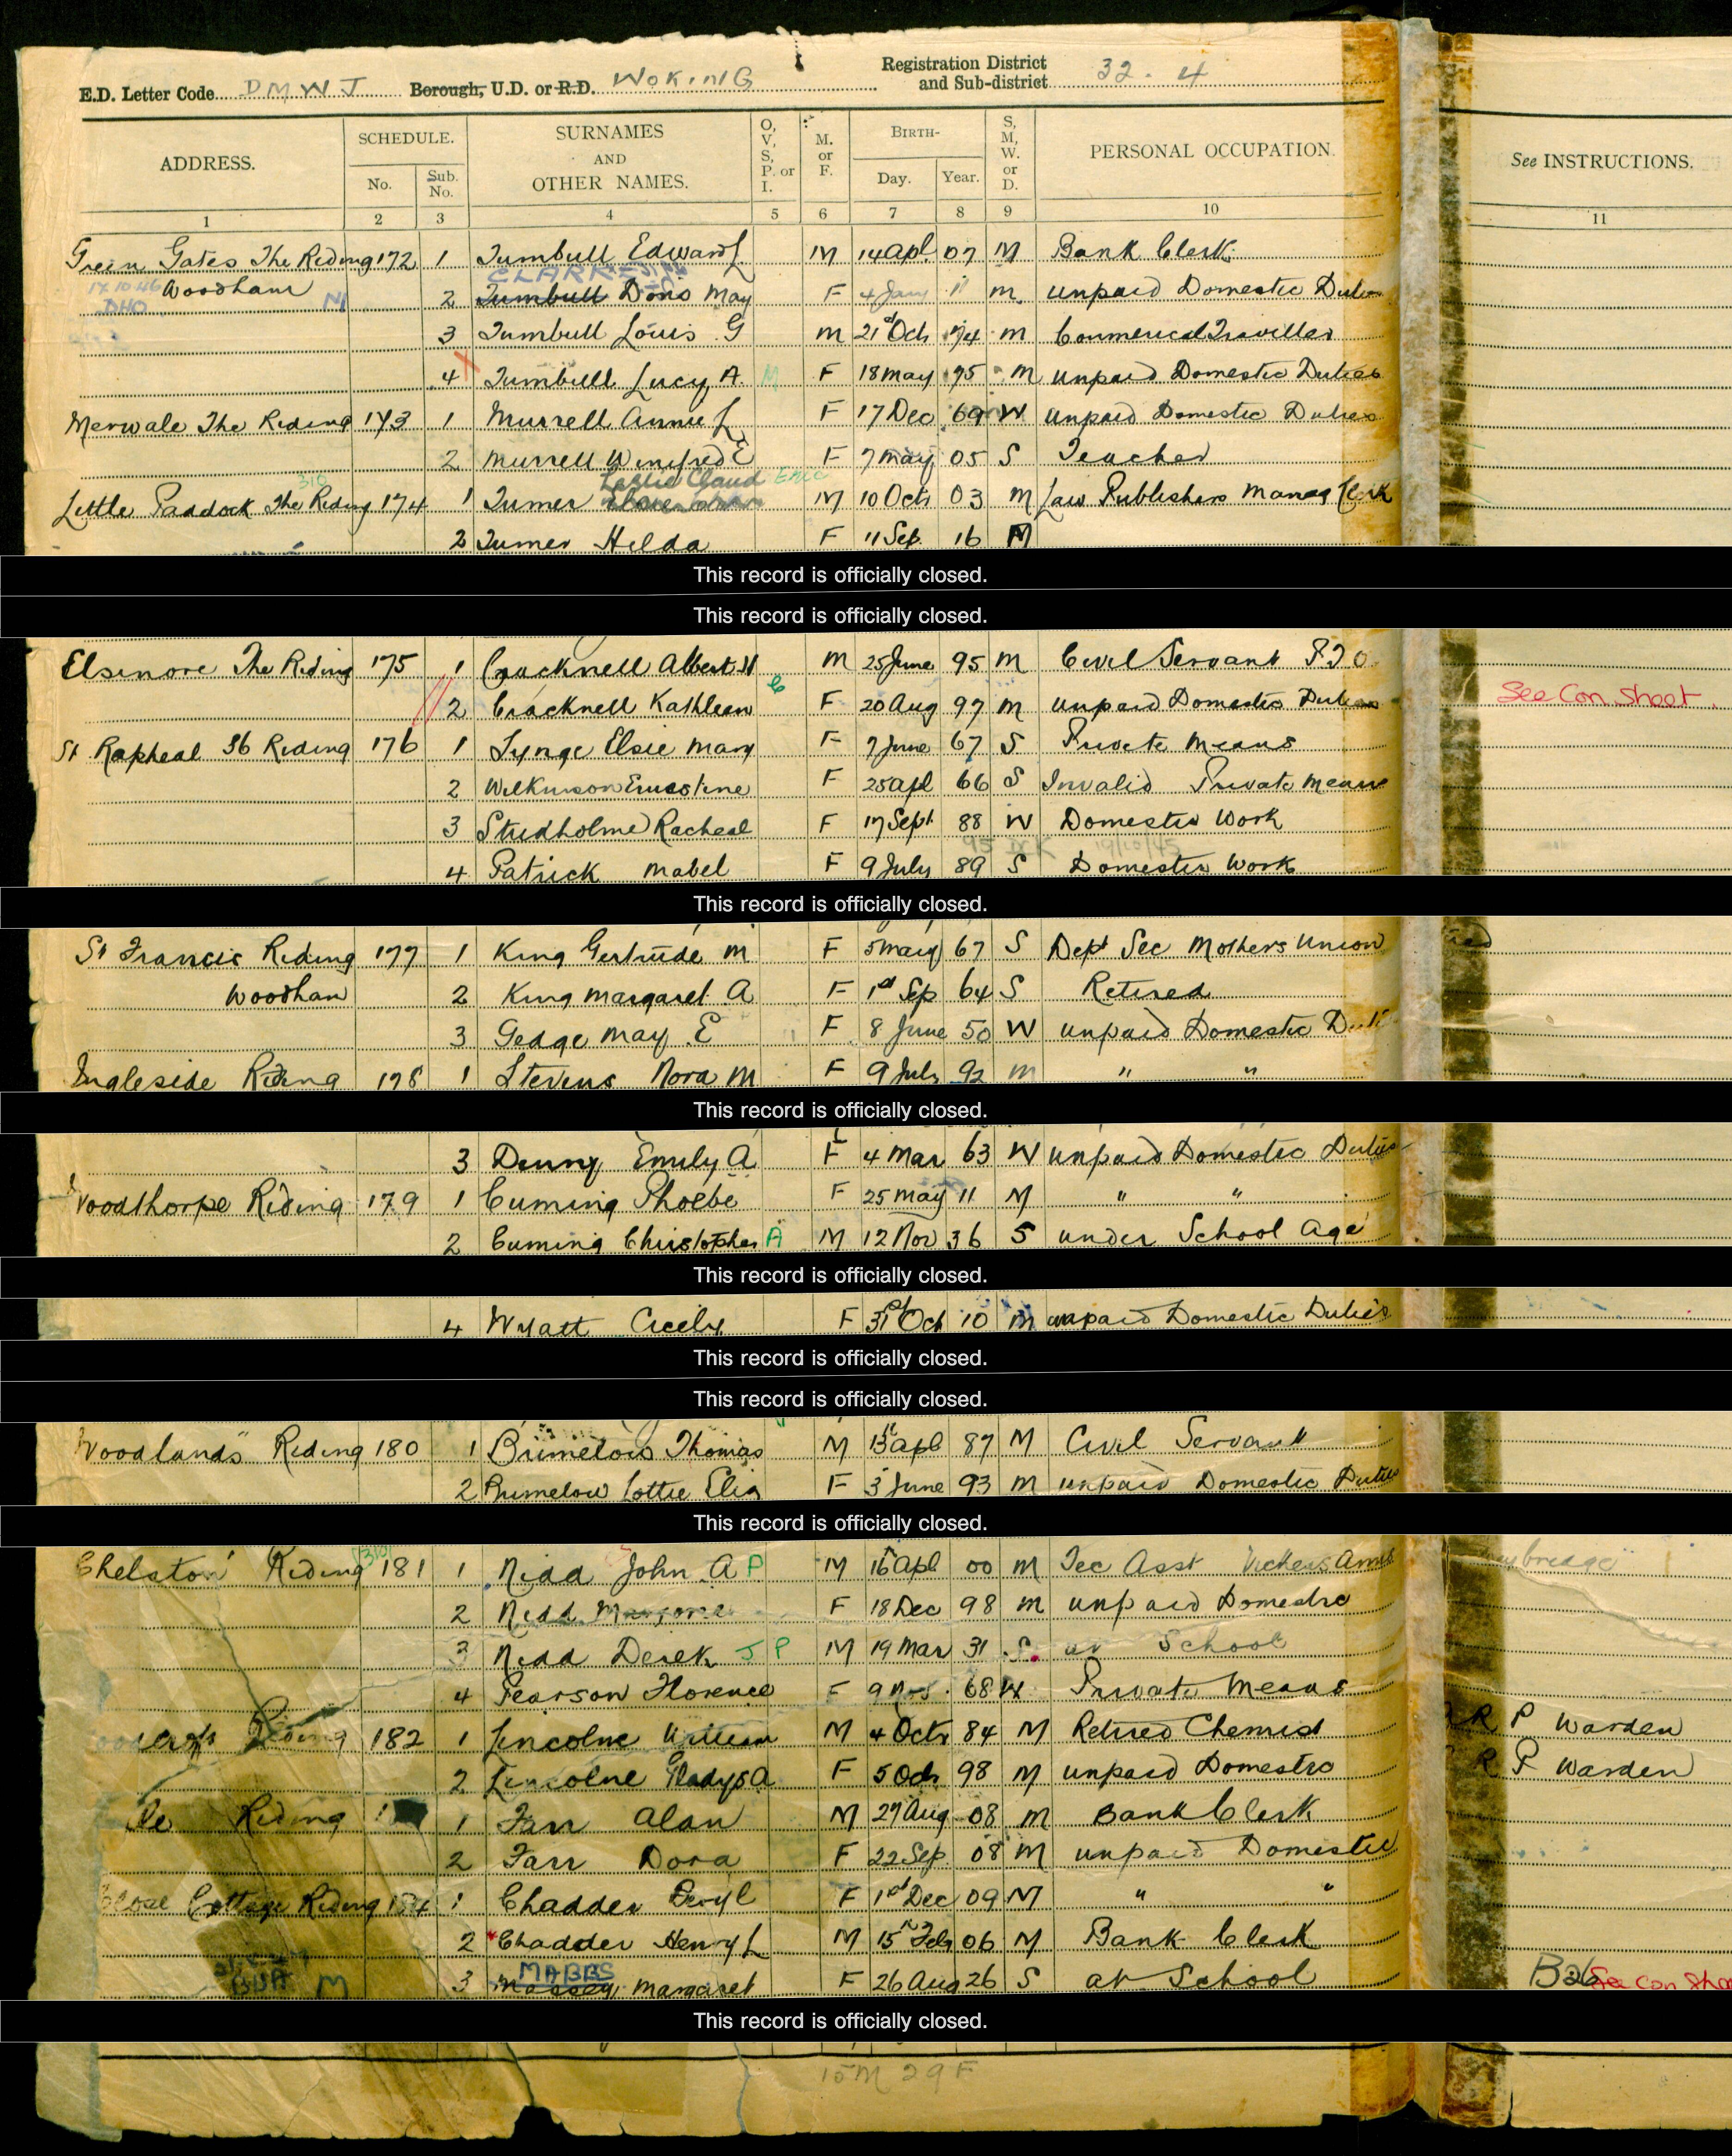 E.D. Letter Code DMWJ Borough, U.D. or R.D. WOKING Registration District and Sub-district 32. 4
ADDRESS. SCHEDULE. No. Sub. No. SURNAMES AND OTHER NAMES. O, V, S, P. or I. M. or F. BIRTH- Day. Year. S, M, W. or D. PERSONAL OCCUPATION. See INSTRUCTIONS.
1 2 3 4 5 6 7 8 9 10 11
Green Gates The Riding 172 1 Turnbull Edward L M 14 Apl 07 M Bank Clerk
CLARKE
17.10.46 Woodham 2 Turnbull Doris May F 4 Jan 11 M unpaid Domestic Duties
DHO NI
3 Turnbull Louis G M 21st Oct 74 M Commerical Traviller
4 Turnbull Lucy A M F 18 May 75 M unpaid Domestic Duties
Merwale The Riding 173 1 Murrell Annie L F 17 Dec 69 W unpaid Domestic Duties
2 Murrell Winifred E F 7 May 05 S Teacher
310 Leslie Claud Eric
Little Paddock The Riding 174 1 Turner M 10 Oct 03 M Law Publishers Manag Clerk
2 Turner Hilda F 11 Sep 16 M
This record is officially closed.
This record is officially closed.
Elsinore The Riding 175 1 Cracknell Albert H M 25 June 95 M Civil Servant
2 Cracknell Kathleen C F 20 Aug 97 M unpaid Domestic Duties See Con Sheet.
St Rapheal 36 Riding 176 1 Lynge Elsie Mary F 7 June 67 S Private Means
2 Wilkinson Ernestine F 25 Apl 66 S Invalid Private Means
3 Studholme Racheal F 17 Sept 88 W Domestic Work
95 19/10/45
4 Patrick Mabel F 9 July 89 S Domestic Work
This record is officially closed.
St Francis Riding 177 1 King Gertrude M F 5 May 67 S Dept Sec Mothers Union
Woodham 2 King Margaret A F 1st Sep 64 S Retired
3 Gedge May E F 8 June 50 W unpaid Domestic
Ingleside Riding 178 1 Stevens Nora M F 9 July 92 M " "
This record is officially closed.
3 Denny Emily A F 4 Mar 63 W unpaid Domestic Duties
Woodthorpe Riding 179 1 Cuming Phoebe F 25 May 11 M " "
2 Cuming Christopher A M 12 Nov 36 S under School Age
This record is officially closed.
4 Wyatt Cicely F 31st Oct 10 M unpaid Domestic Duties
This record is officially closed.
This record is officially closed.
Woodlands Riding 180 1 Brimelow Thomas M 13 Apl 87 M Civil Servant
2 Brimelow Lottie Eliz F 3 June 93 M unpaid Domestic Duties
This record is officially closed.
Chelston Riding 310 181 1 Nidd John A P M 15 Apl 00 M Tec Asst Vickers Arms
2 Nidd Marjorie F 18 Dec 98 M unpaid Domestic
3 Nidd Derek J P M 19 Mar 31 S at School
4 Pearson Florence F 9 68 W Private Means
Riding 182 1 Lincolne William M 4 Oct 84 M Retired Chemist R P Warden
2 Lincolne Gladys A F 5 Oct 98 M unpaid Domestic R P Warden
Riding 1 Farr Alan M 27 Aug 08 M Bank Clerk
2 Farr Dora F 22 Sep 08 M unpaid Domestic
Close Cottage Riding 184 1 Chadder Beryl F 1st Dec 09 M " "
2 Chadder Henry L M 15 Feb 06 M Bank Clerk
MABBS
BUA M 3 Massey Margaret F 26 Aug 26 S at School B26 See Con Shee
This record is officially closed.
15M 29F